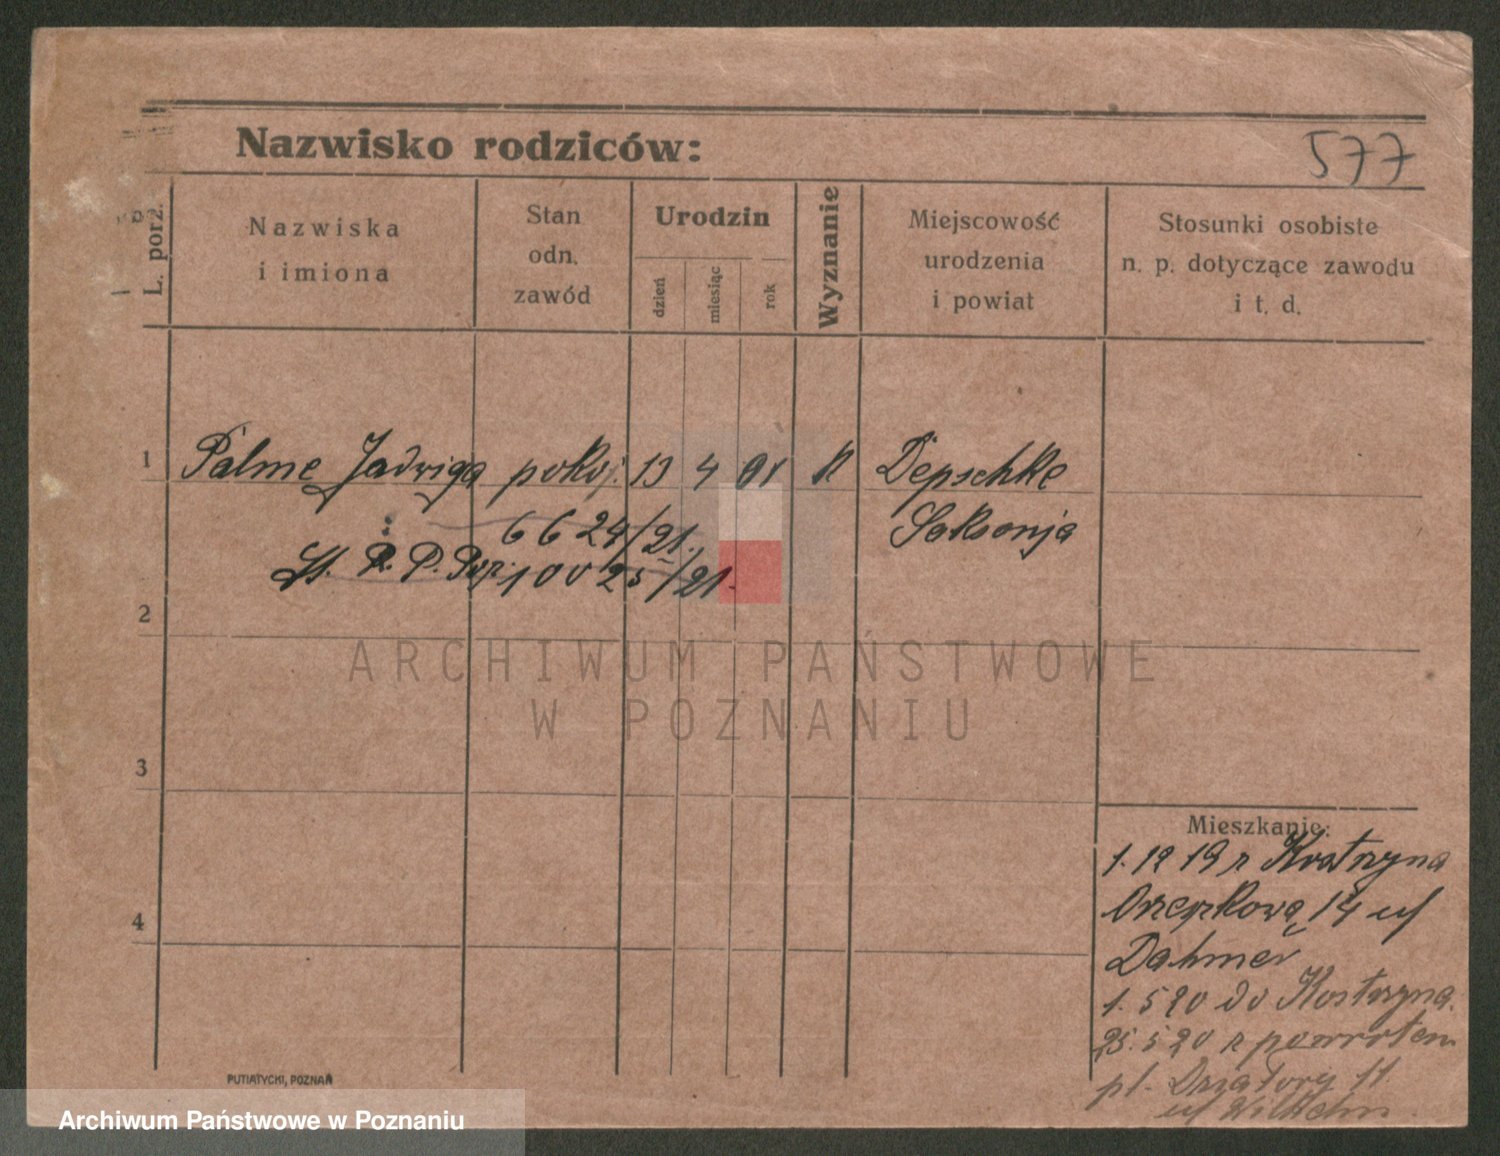 Nazwisko rodziców:
577
L. porz.
Nazwiska
i imiona
Stan
odn.
zawód
Urodzin
dzień
miesiąc
rok
Wyznanie
Miejscowość
urodzenia
i powiat
Stosunki osobiste
n. p. dotyczące zawodu
i t. d.
1 Palme Jadwiga pokoj. 13 4 01 K Depschke
6624/21. Saksonja
St. P. P. 10025/21.
2
ARCHIWUM PAŃSTWOWE
W POZNANIU
3
4
Mieszkanie:
1. 12 19 z Kostrzyna
14 uf
Dahmer
1. 5 20 do Kostrzyna.
25. 5 20 z powrotem
pl. Działowy 11.
uf Wilhelm.
PUTIATYCKI, POZNAŃ
Archiwum Państwowe w Poznaniu